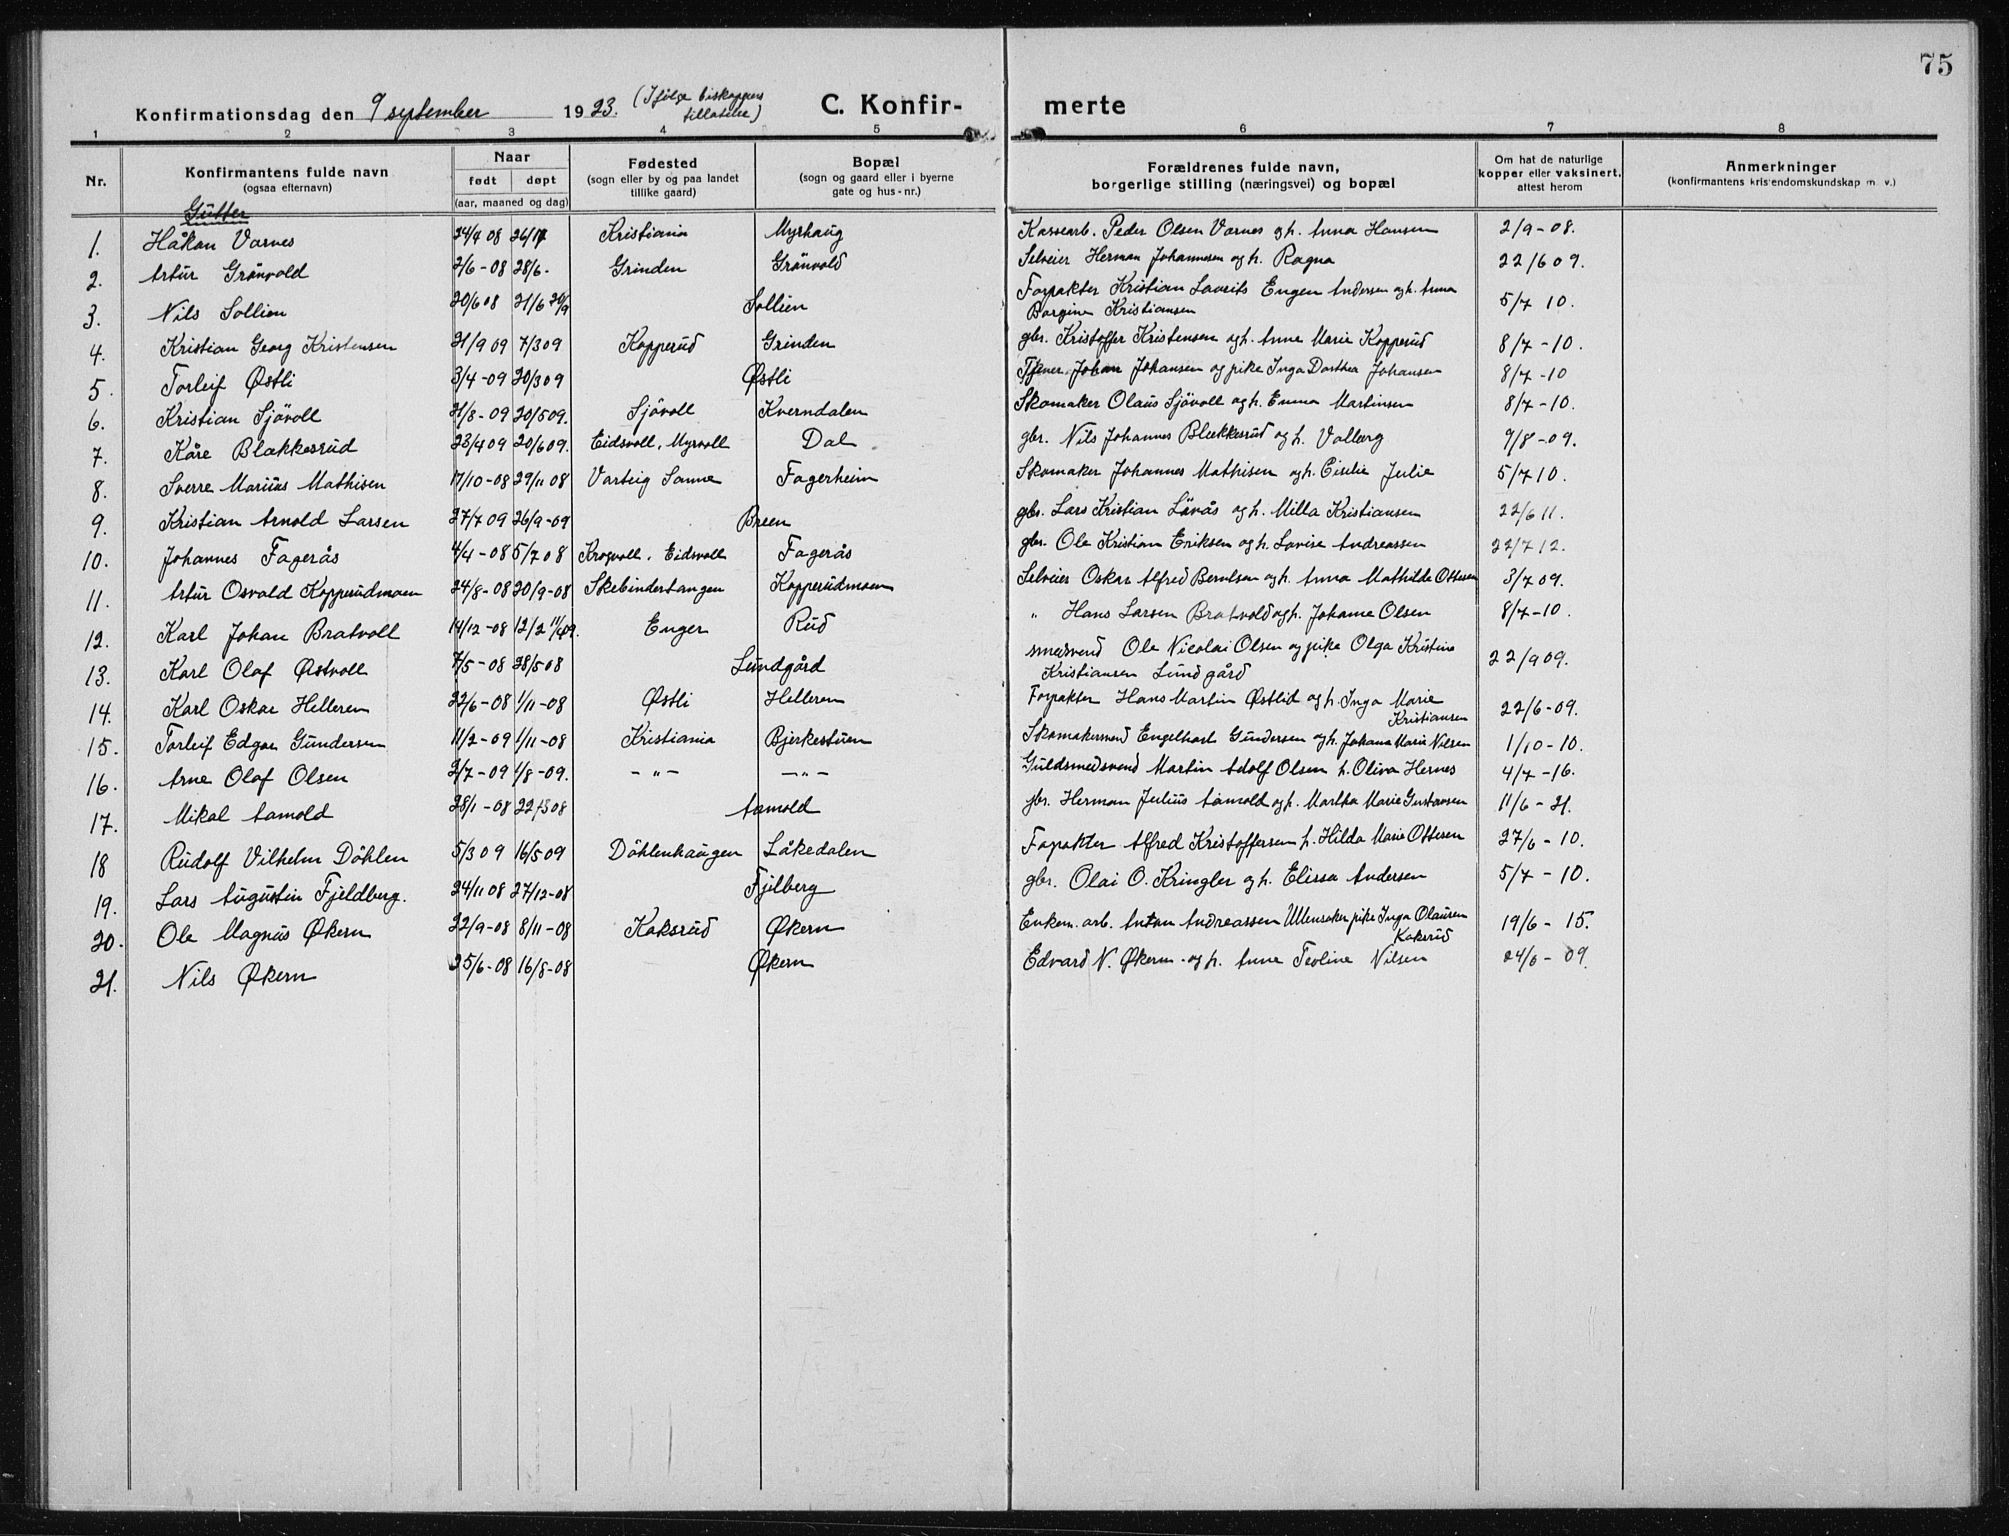 75
Konfirmationsdag den 9 september 1923. (Ifølge biskoppens tillatelse) C. Konfir- merte
1 2 3 4 5 6 7 8
Nr. Konfirmantens fulde navn (ogsaa efternavn) Naar født døpt (aar, maaned og dag) Fødested (sogn eller by og paa landet tillike gaard) Bopæl (sogn og gaard eller i byerne gate og hus-nr.) Forældrenes fulde navn, borgerlige stilling (næringsvei) og bopæl Om hat de naturlige kopper eller vaksinert, attest herom Anmerkninger (konfirmantens kristendomskundskap m. v.)
Gutter
1. Håkon Varnes 24/4 08 26/17 Kristiania Myrhaug Kassearb. Peder Olsen Varnes og h. Anna Hansen 2/9-08.
2. Artur Grönvold 2/6-08 28/6. Grinden Grönvold Selveier Herman Johannesen og h. Ragna 22/6 09.
3. Nils Sollien 20/6 08 21/6 20/9 Sollien Forpakter Kristian Laurits Engen Andersen og h. Anna Borgine Kristiansen 5/7 10.
4. Kristian Georg Kristensen 21/9 09 7/3 09 Kopperud Grinden gbr. Kristoffer Kristensen og h. Anne Marie Kopperud 8/7-10.
5. Torleif Østli 3/4-09 20/3 09 Østli Tjener Johan Johansen og pike Inga Dorthea Johansen 8/7-10
6. Kristian Sjövoll 21/8-09 20/5 09. Sjövoll Kverndalen Skomaker Olaus Sjövoll og h. Emma Martinsen 8/7-10.
7. Kåre Blækkerud 23/4 09 20/6 09. Eidsvoll, Myrvoll Dal gbr. Nils Johannes Blækkesrud og h. Valborg 9/8-09.
8. Sverre Marius Mathisen 17/10-08 29/11 08 Varteig Sanne Fagerheim Skomaker Johannes Mathisen og h. Julie 5/7 10.
9. Kristian Arnold Larsen 27/7 09 26/9-09 Breen gbr. Lars Kristian Lövås og h. Milla Kristiansen 22/6 11.
10. Johannes Fagerås 4/4-08 5/7 08 Krogvoll, Eidsvoll Fagerås gbr. Ole Kristian Eriksen og h. Lovise Andreassen 22/7 12.
11. Artur Osvald Kopperudmoen 24/8-08 20/9-08 Skebindertangen Kopperudmoen Selveier Oskar Alfred Berntsen og h. Anna Mathilde Ottesen 3/7 09.
12. Karl Johan Bratvoll 14/12-08 12/2 11/4 09. Enger Rud " Hans Larsen Bratvold og h. Johanne Olsen 8/7-10.
13. Karl Olaf Østvoll 7/5-08 28/5 08 Lundgård smedsvend Ole Nicolai Olsen og pike Olga Kristine Kristiansen Lundgård 22/9 09.
14. Karl Oskar Helleren 22/6-08 1/11-08 Østli Helleren Forpakter Hans Martin Østlid og h. Inga Marie Kristiansen 22/6-09.
15. Torleif Edgar Gundersen 11/2-09 1/11-08 Kristiania Bjerkestuen Skomakersvend Engelhart Gundersen og h. Johanne Marie Nilsen 1/10-10.
16. Arne Olaf Olsen 2/7-09 1/8-09. - " - - " - Guldsmedsvend Martin Adolf Olsen h. Oliva Hernes 4/7-16.
17. Mikal Aamold 28/1-08 22/3 08 Aamold gbr. Herman Julius Aamold og h. Martha Marie Gustavsen 11/6-21.
18 Rudolf Vilhelm Döhlen 5/3 09 16/5 09 Döhlenhaugen Låkedalen Fopakter Alfred Kristoffersen h. Hilda Marie Ottesen 27/6-10.
19. Lars Augustin Fjeldberg. 24/11 08 27/12-08 Fjelberg gbr. Olai O. Kringler og h. Elissa Andersen 5/7-10.
20. Ole Magnus Økern 22/9-08 8/11-08 Koksrud Økern Enkem. arb. Anton Andreassen Ullensaker pike Inga Olausen Koksrud 19/6-15.
21. Nils Økern 25/6-08 16/8-08 Økern Edvard N. Økern og h. Anne Teoline Nilsen 24/6-09.